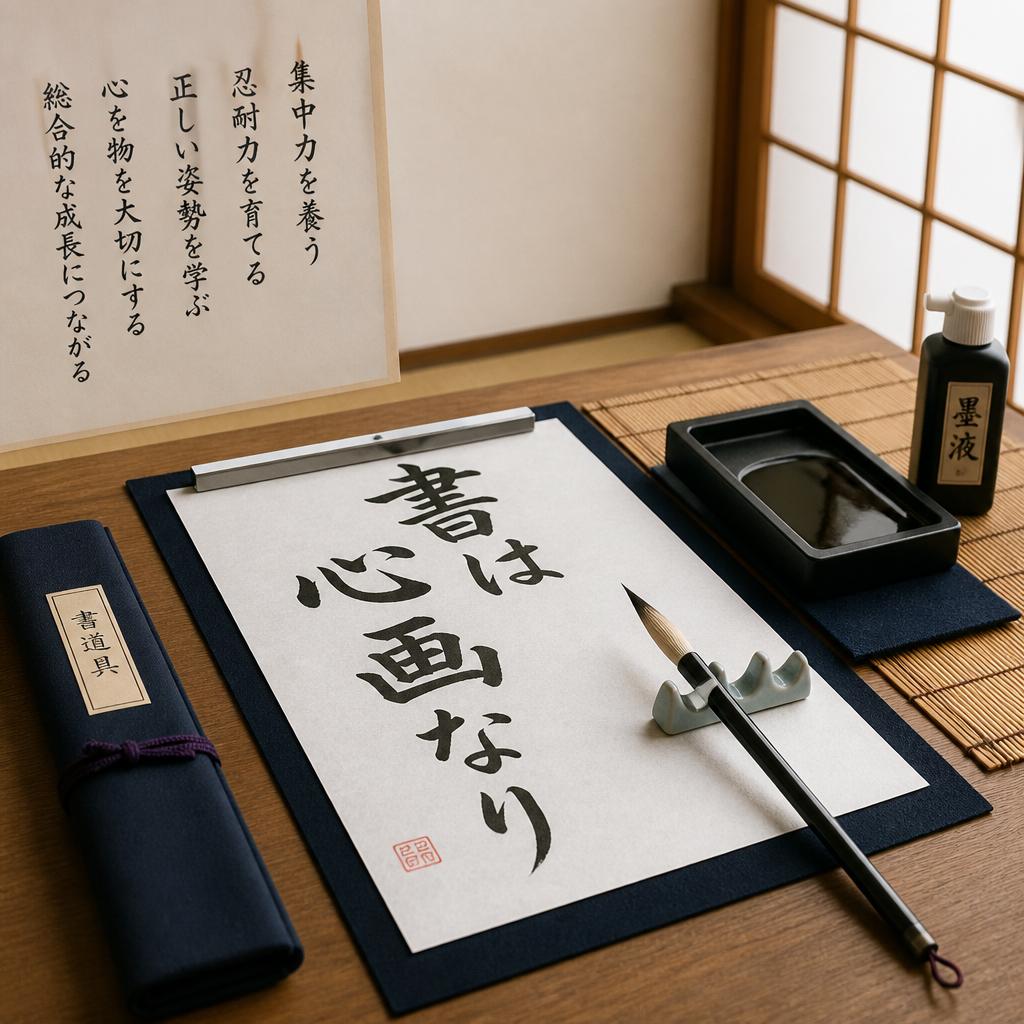 集中力を養う
忍耐力を育てる
正しい姿勢を学ぶ
心を物を大切にする
総合的な成長につながる
書は
心画なり
書道具
墨液